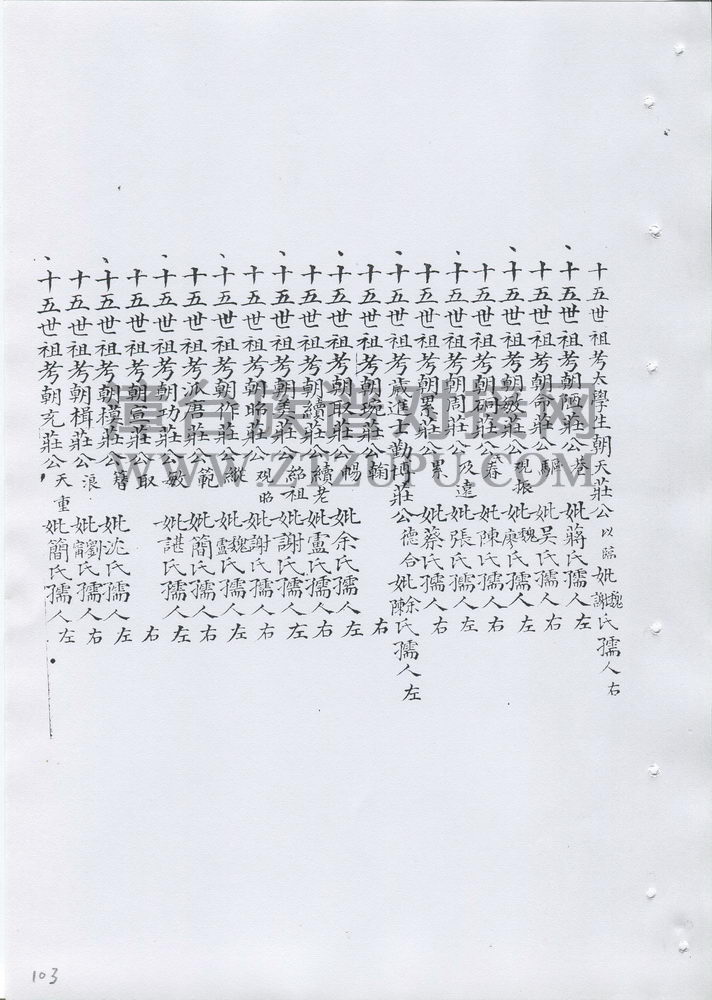 十五世祖考大學生朝天莊公以臨妣魏謝氏孺人右
十五世祖考朝陋莊公巷妣蔣氏孺人左
十五世祖考朝命莊公騆妣吳氏孺人右
十五世祖考朝敏莊公現振妣魏廖氏孺人左
十五世祖考朝莊公春妣陳氏孺人右
十五世祖考朝周莊公及遠妣張氏孺人左
十五世祖考朝累莊公累妣蔡氏孺人右
十五世祖考歲進士勤博莊公德合妣余陳氏孺人左
十五世祖考朝琬莊公翰右
十五世祖考朝取莊公暢妣余氏孺人左
十五世祖考朝續莊公續老妣盧氏孺人右
十五世祖考朝美莊公紹祖妣謝氏孺人左
十五世祖考朝昭莊公現昭妣謝氏孺人右
十五世祖考朝作莊公縱妣魏盧氏孺人左
十五世祖考派唐莊公範妣簡氏孺人右
十五世祖考朝功莊公敏妣諶氏孺人左
十五世祖考朝宣莊公取右
十五世祖考朝模莊公簪妣沈氏孺人左
十五世祖考朝楫莊公浪妣劉甯氏孺人右
十五世祖考朝充莊公天重妣簡氏孺人左
臺台族谱对接网
WWW.ZTZUPU.COM
103